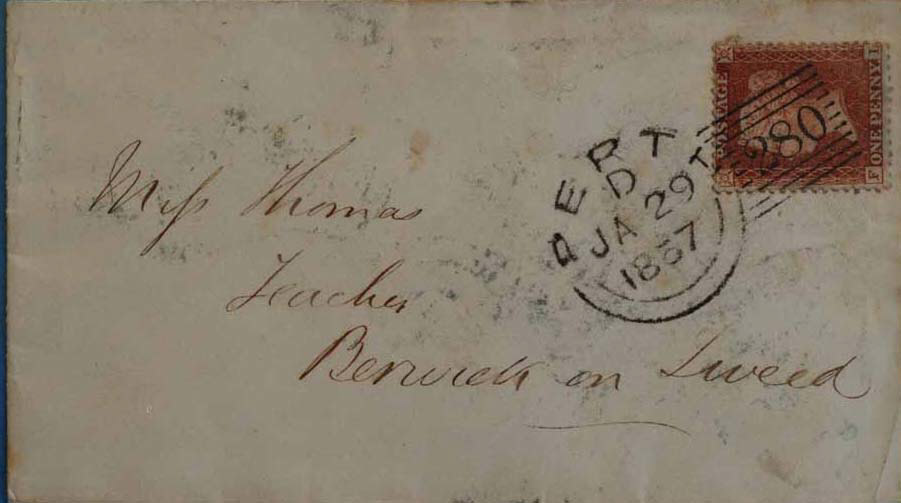 POSTAGE
ONE PENNY
280
PERTH
D
JA 29
1857
Miss Thomas
Teacher
Berwick on Tweed